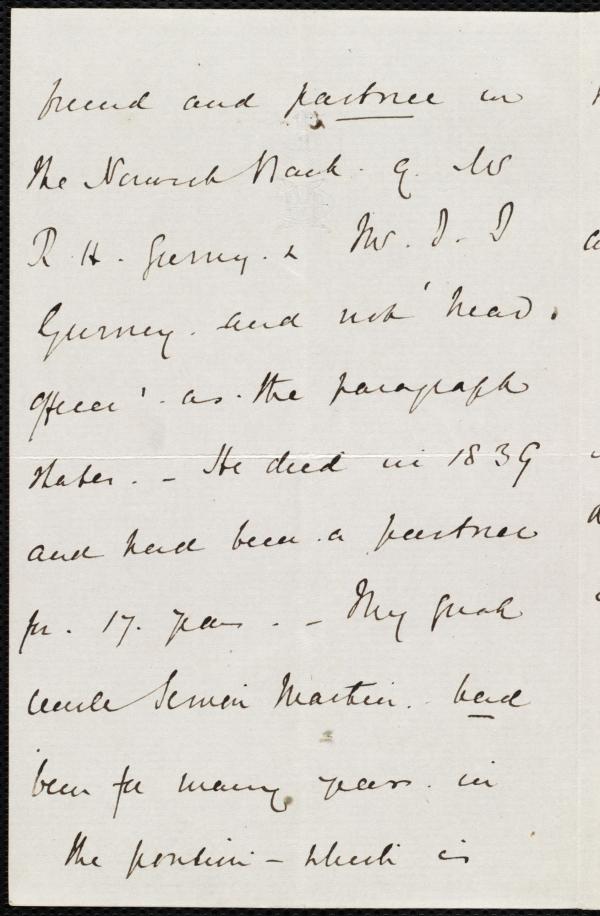 friend and partner in
the Norwich Bank. of Mr
R. H. Gurney. & Mr. D. D
Gurney. and not 'head.
officer'. as. the paragraph
states. - He died in 1839
and had been. a partner
for. 17. years. - My great
uncle Simon Martin. had
been for many years. in
the position - which is